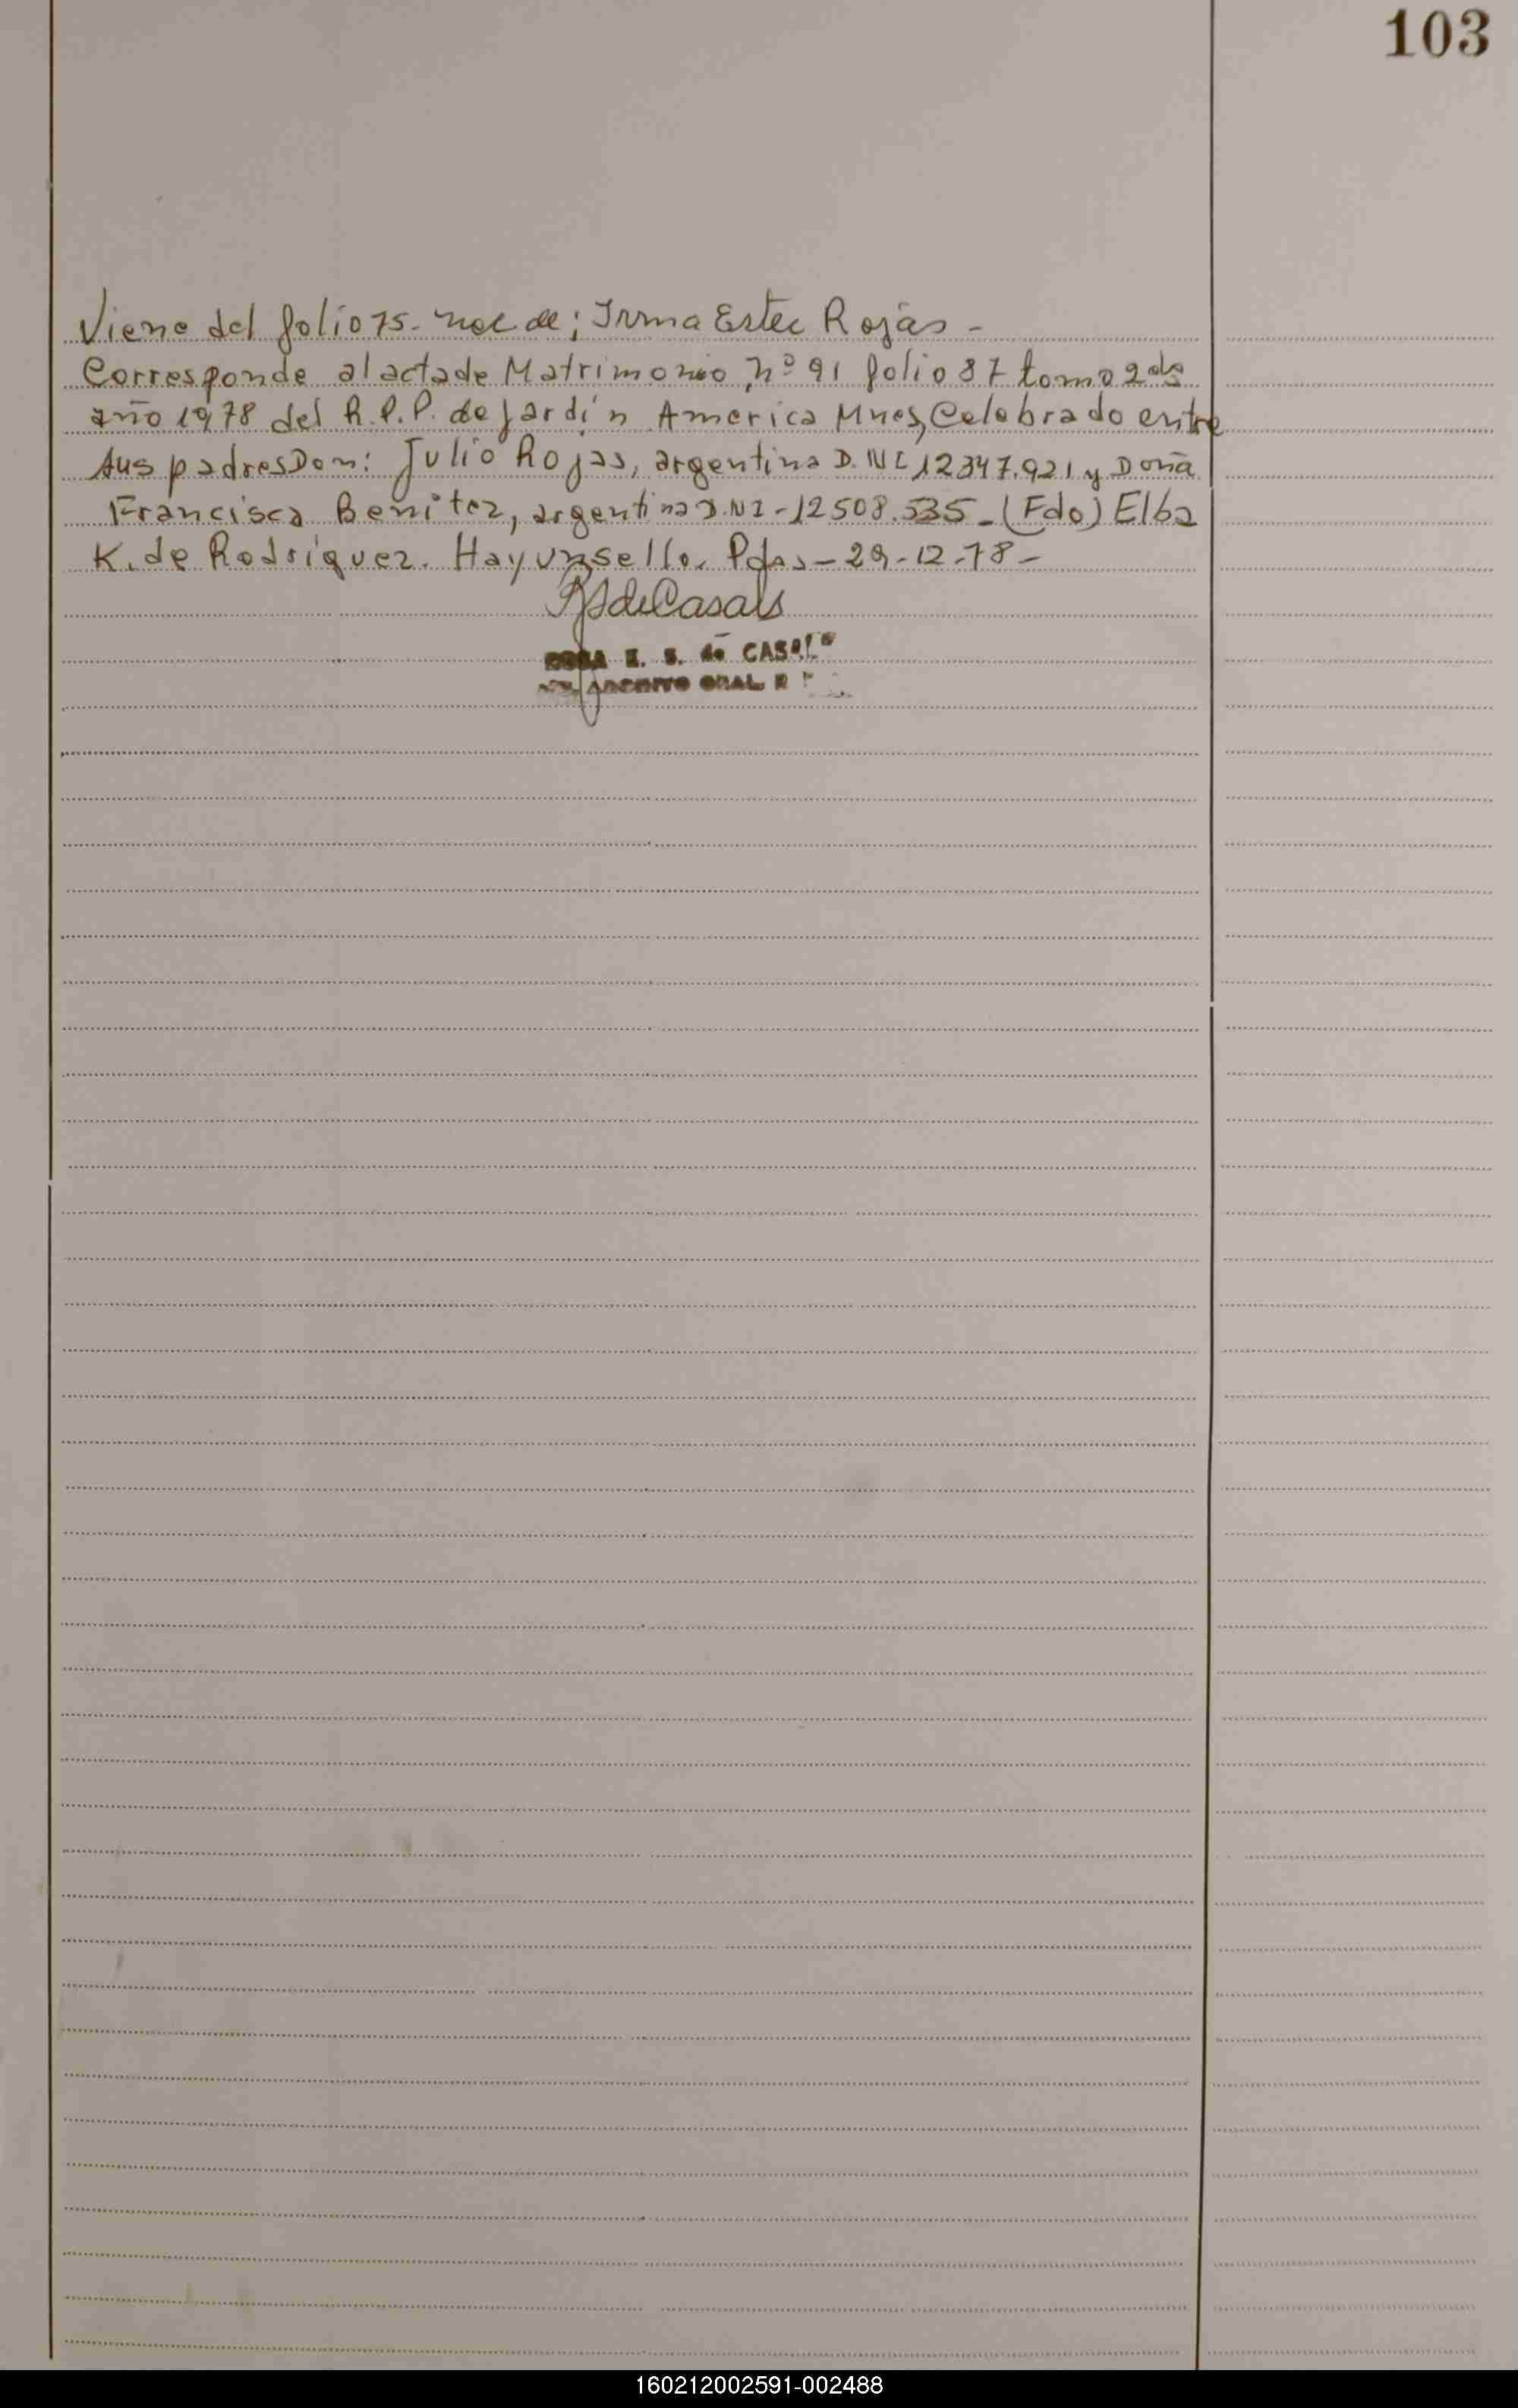 103
Viene del folio 75. nac de; Irma Ester Rojas -
Corresponde al acta de Matrimonio, nº 91 folio 87 tomo 2 de
año 1978 del R.P.P. de Jardín America Mnes, Celebrado entre
sus padres Don: Julio Rojas, argentina D.N.I 12347.921 y Doña
Francisca Benitez, argentina D.N.I - 12508.535 - (Fdo) Elba
K. de Rodriguez. Hay un sello. Pdas - 29-12-78 -
de Casals
ROSA E. S. de CASALS
ARCHIVO GRAL. R P
160212002591-002488